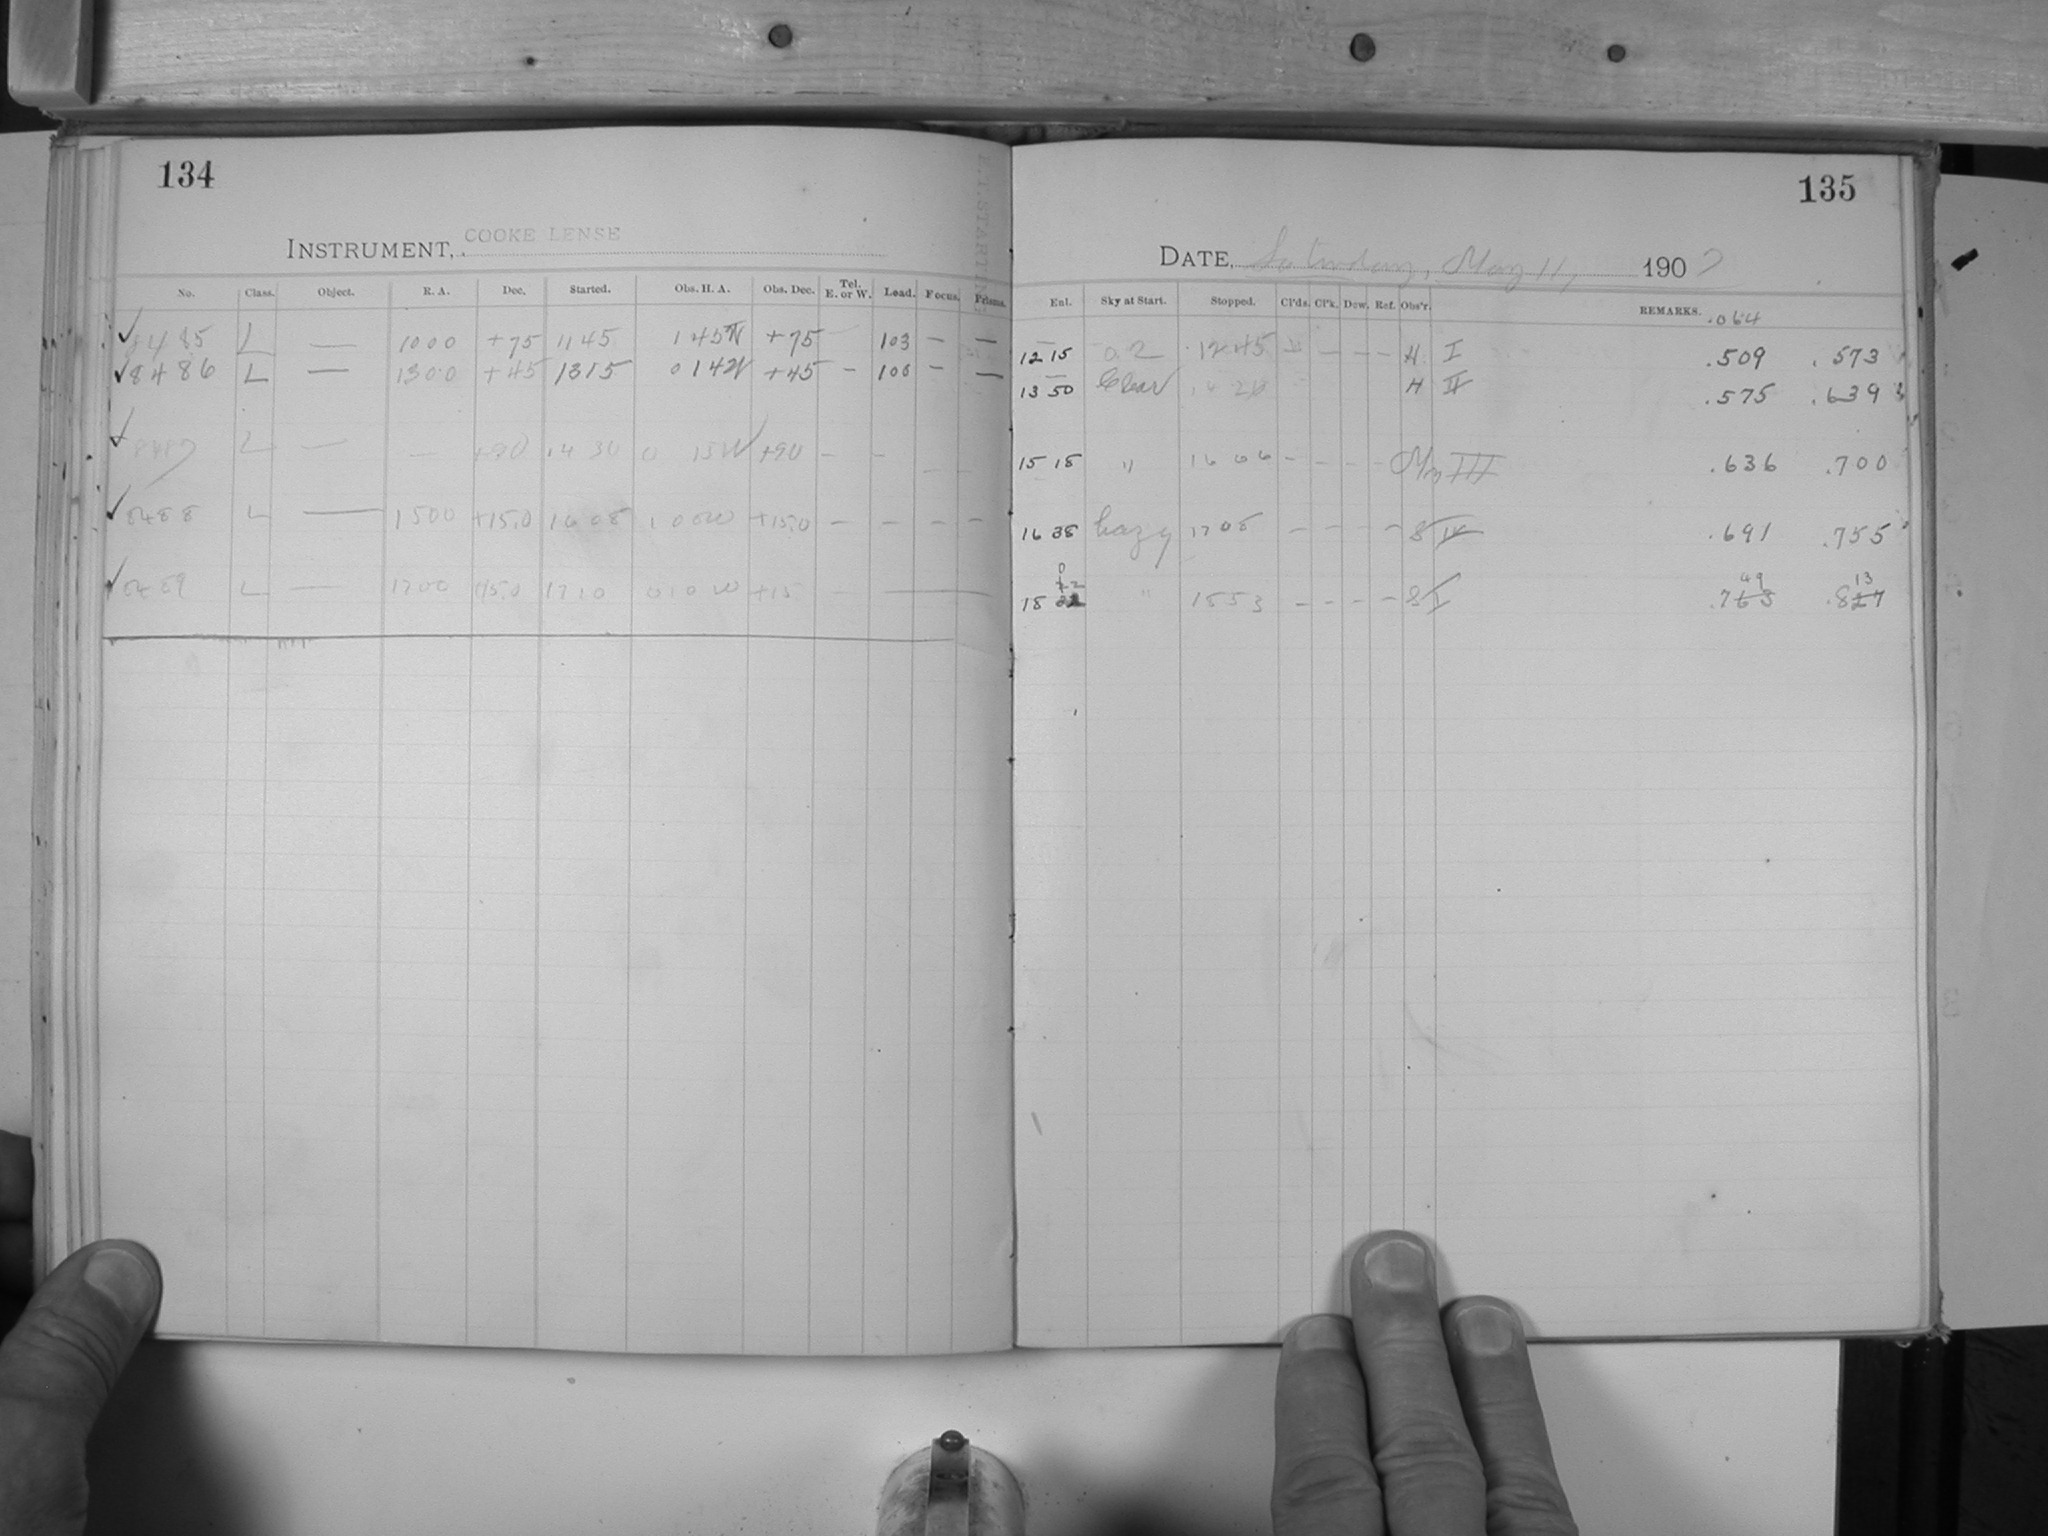 134
INSTRUMENT, COOKE LENSE
No. Class. Object. R. A. Dec. Started. Obs. H. A. Obs. Dec. Tel. E. or W. Load. Focus. Prisms.
✓ 8485 L — 1000 +75 1145 1 45 W +75 — 103 — —
✓ 8486 L — 1300 +45 1315 0 14 W +45 — 106 — —
✓ 8487 L — — +90 14 30 0 15 W +90 — — — —
✓ 8488 L — 1500 +15.0 1608 1 08 W +15.0 — — — —
✓ 8489 L — 1700 +15.0 1710 0 10 W +15. — —
135
DATE, Saturday, May 11, 1907
Enl. Sky at Start. Stopped. Cl'ds. Cl'k. Dew. Ref. Obs'r. REMARKS. .064
12 15 0.2 1245 — — — H I .509 .573
13 50 Clear 14 20 H II .575 .639
15 18 " 16 06 — — — — III .636 .700
16 38 hazy 1708 — — — — S IV .691 .755
18 " 1853 — — — — S I .749 .813